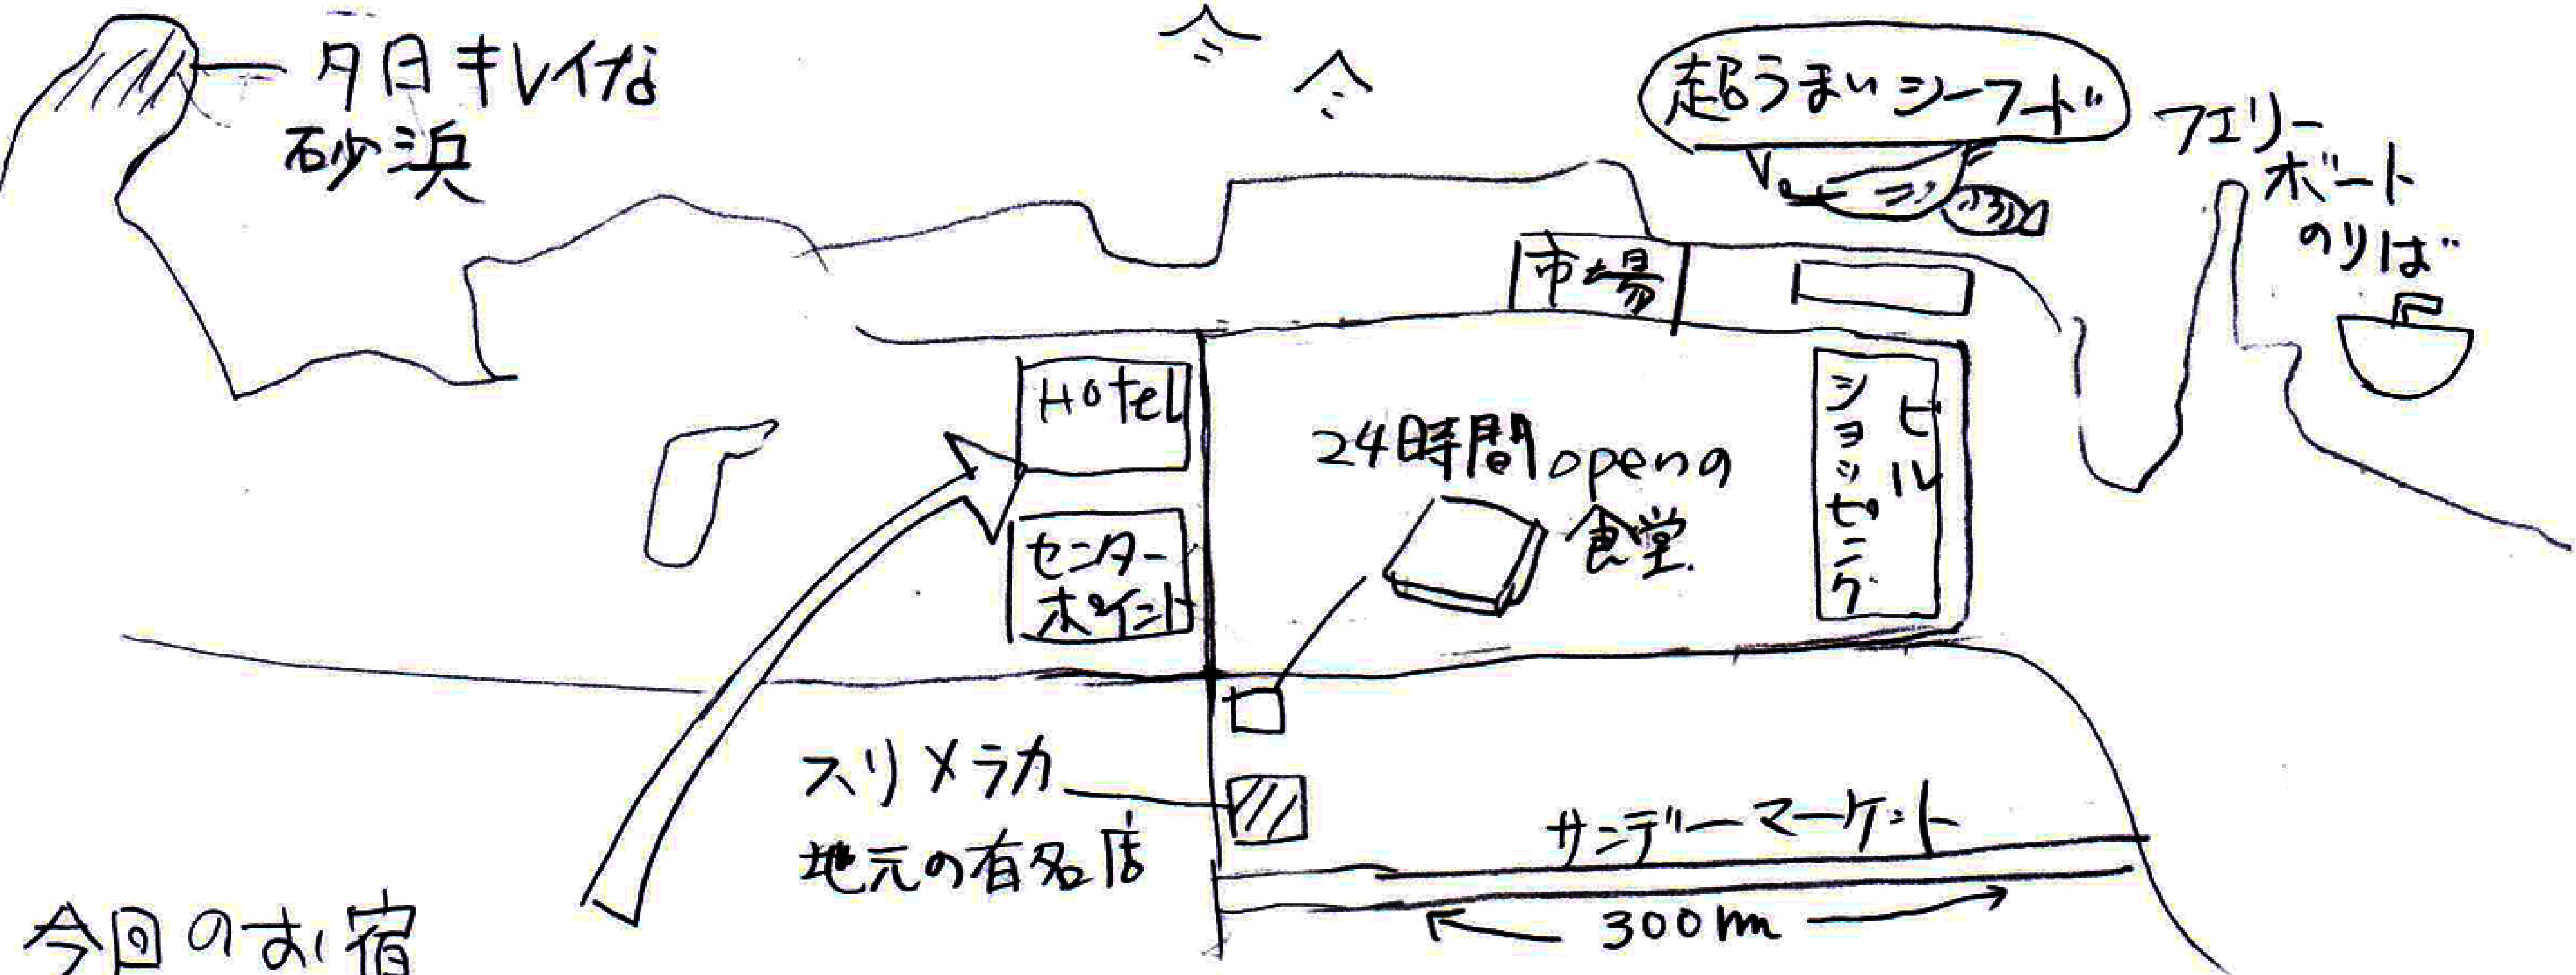 夕日キレイな
砂浜
超うまいシーフード
フェリー
ボート
のりば
市場
Hotel
24時間openの
食堂.
ショッピング
ビル
センター
ポイント
スリメラカ
地元の有名店
サンデーマーケット
300m
今回のお宿